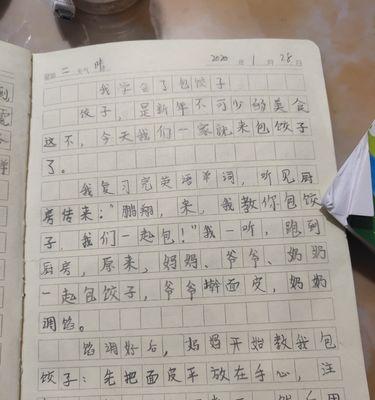 星期 二 天气 晴 2020 年 1 月 28 日
我学会了包饺子
饺子，是新年不可少的美食
这不，今天我们一家就来包饺子
了。
我复习完英语单词，听见厨
房传来："鹏翔，来，我教你包饺
子，我们一起包！"我一听，跑到
厨房，原来，妈妈、爷爷、奶奶
一起包饺子，爷爷擀面皮，奶奶
调馅。
馅调好后，妈妈开始教我包
饺子：先把面皮平放在手心，注